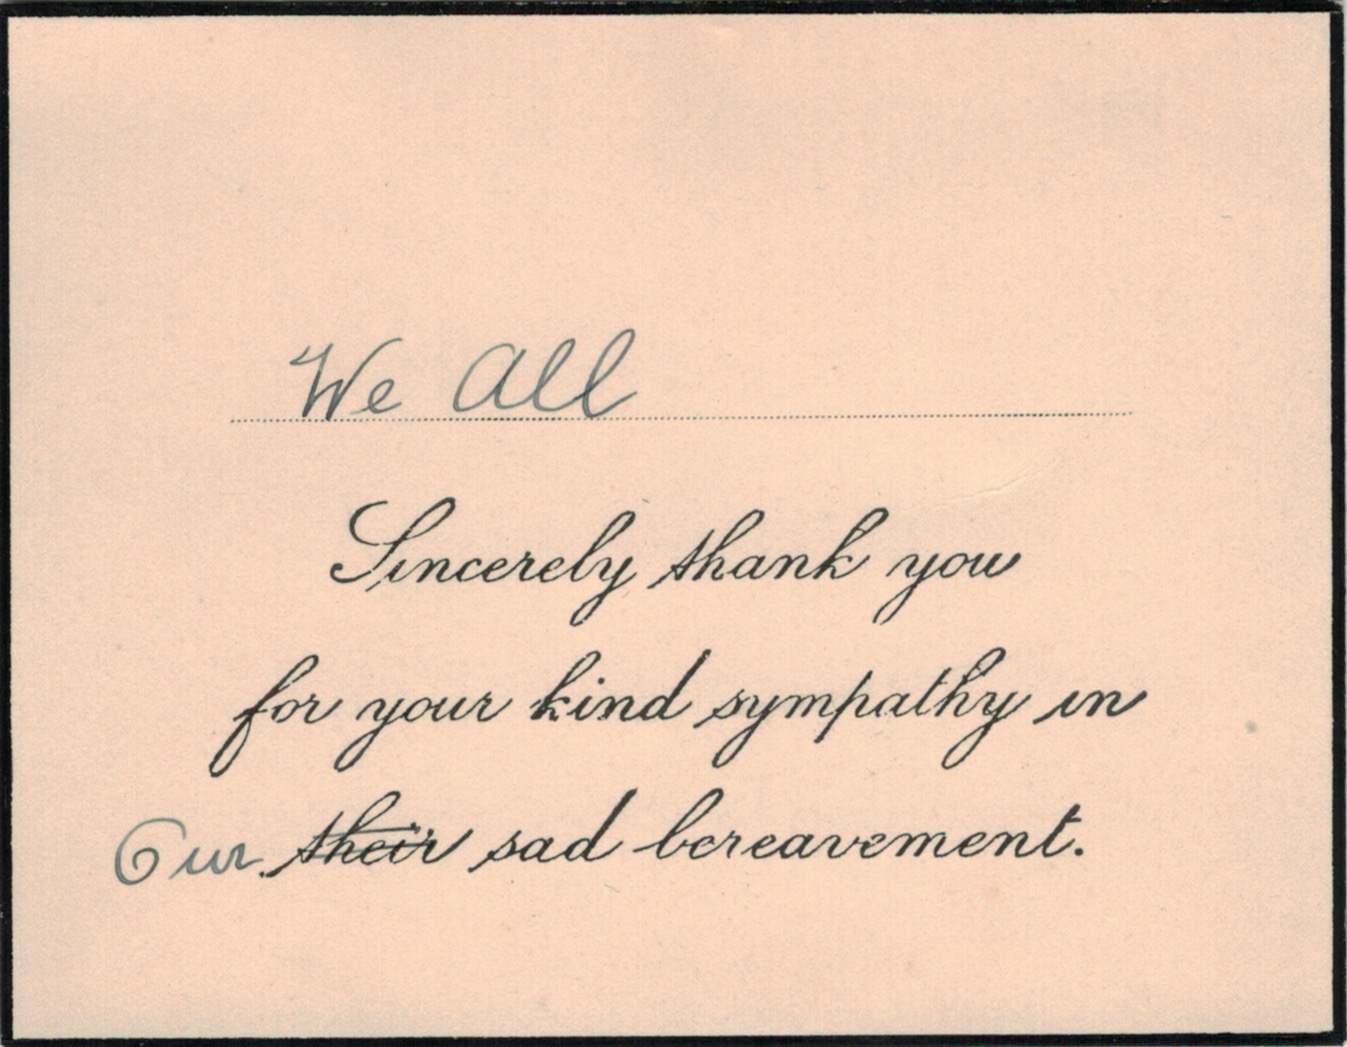 We All
Sincerely thank you
for your kind sympathy in
Our their sad bereavement.